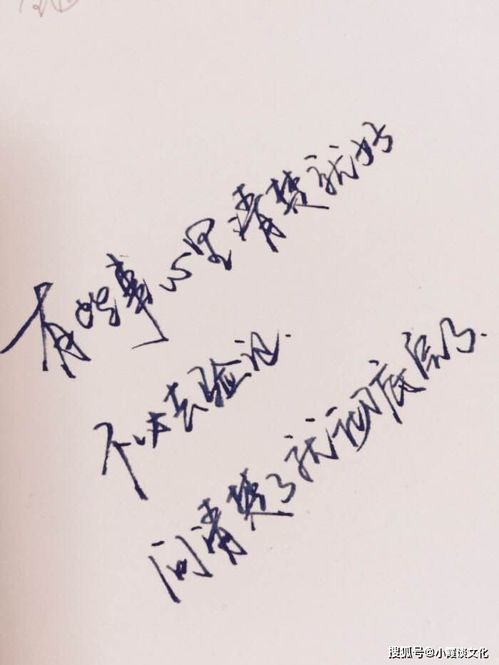 有些事心里清楚就好
不必去验证.
问清楚了就彻底层了.
搜狐号@小霞谈文化